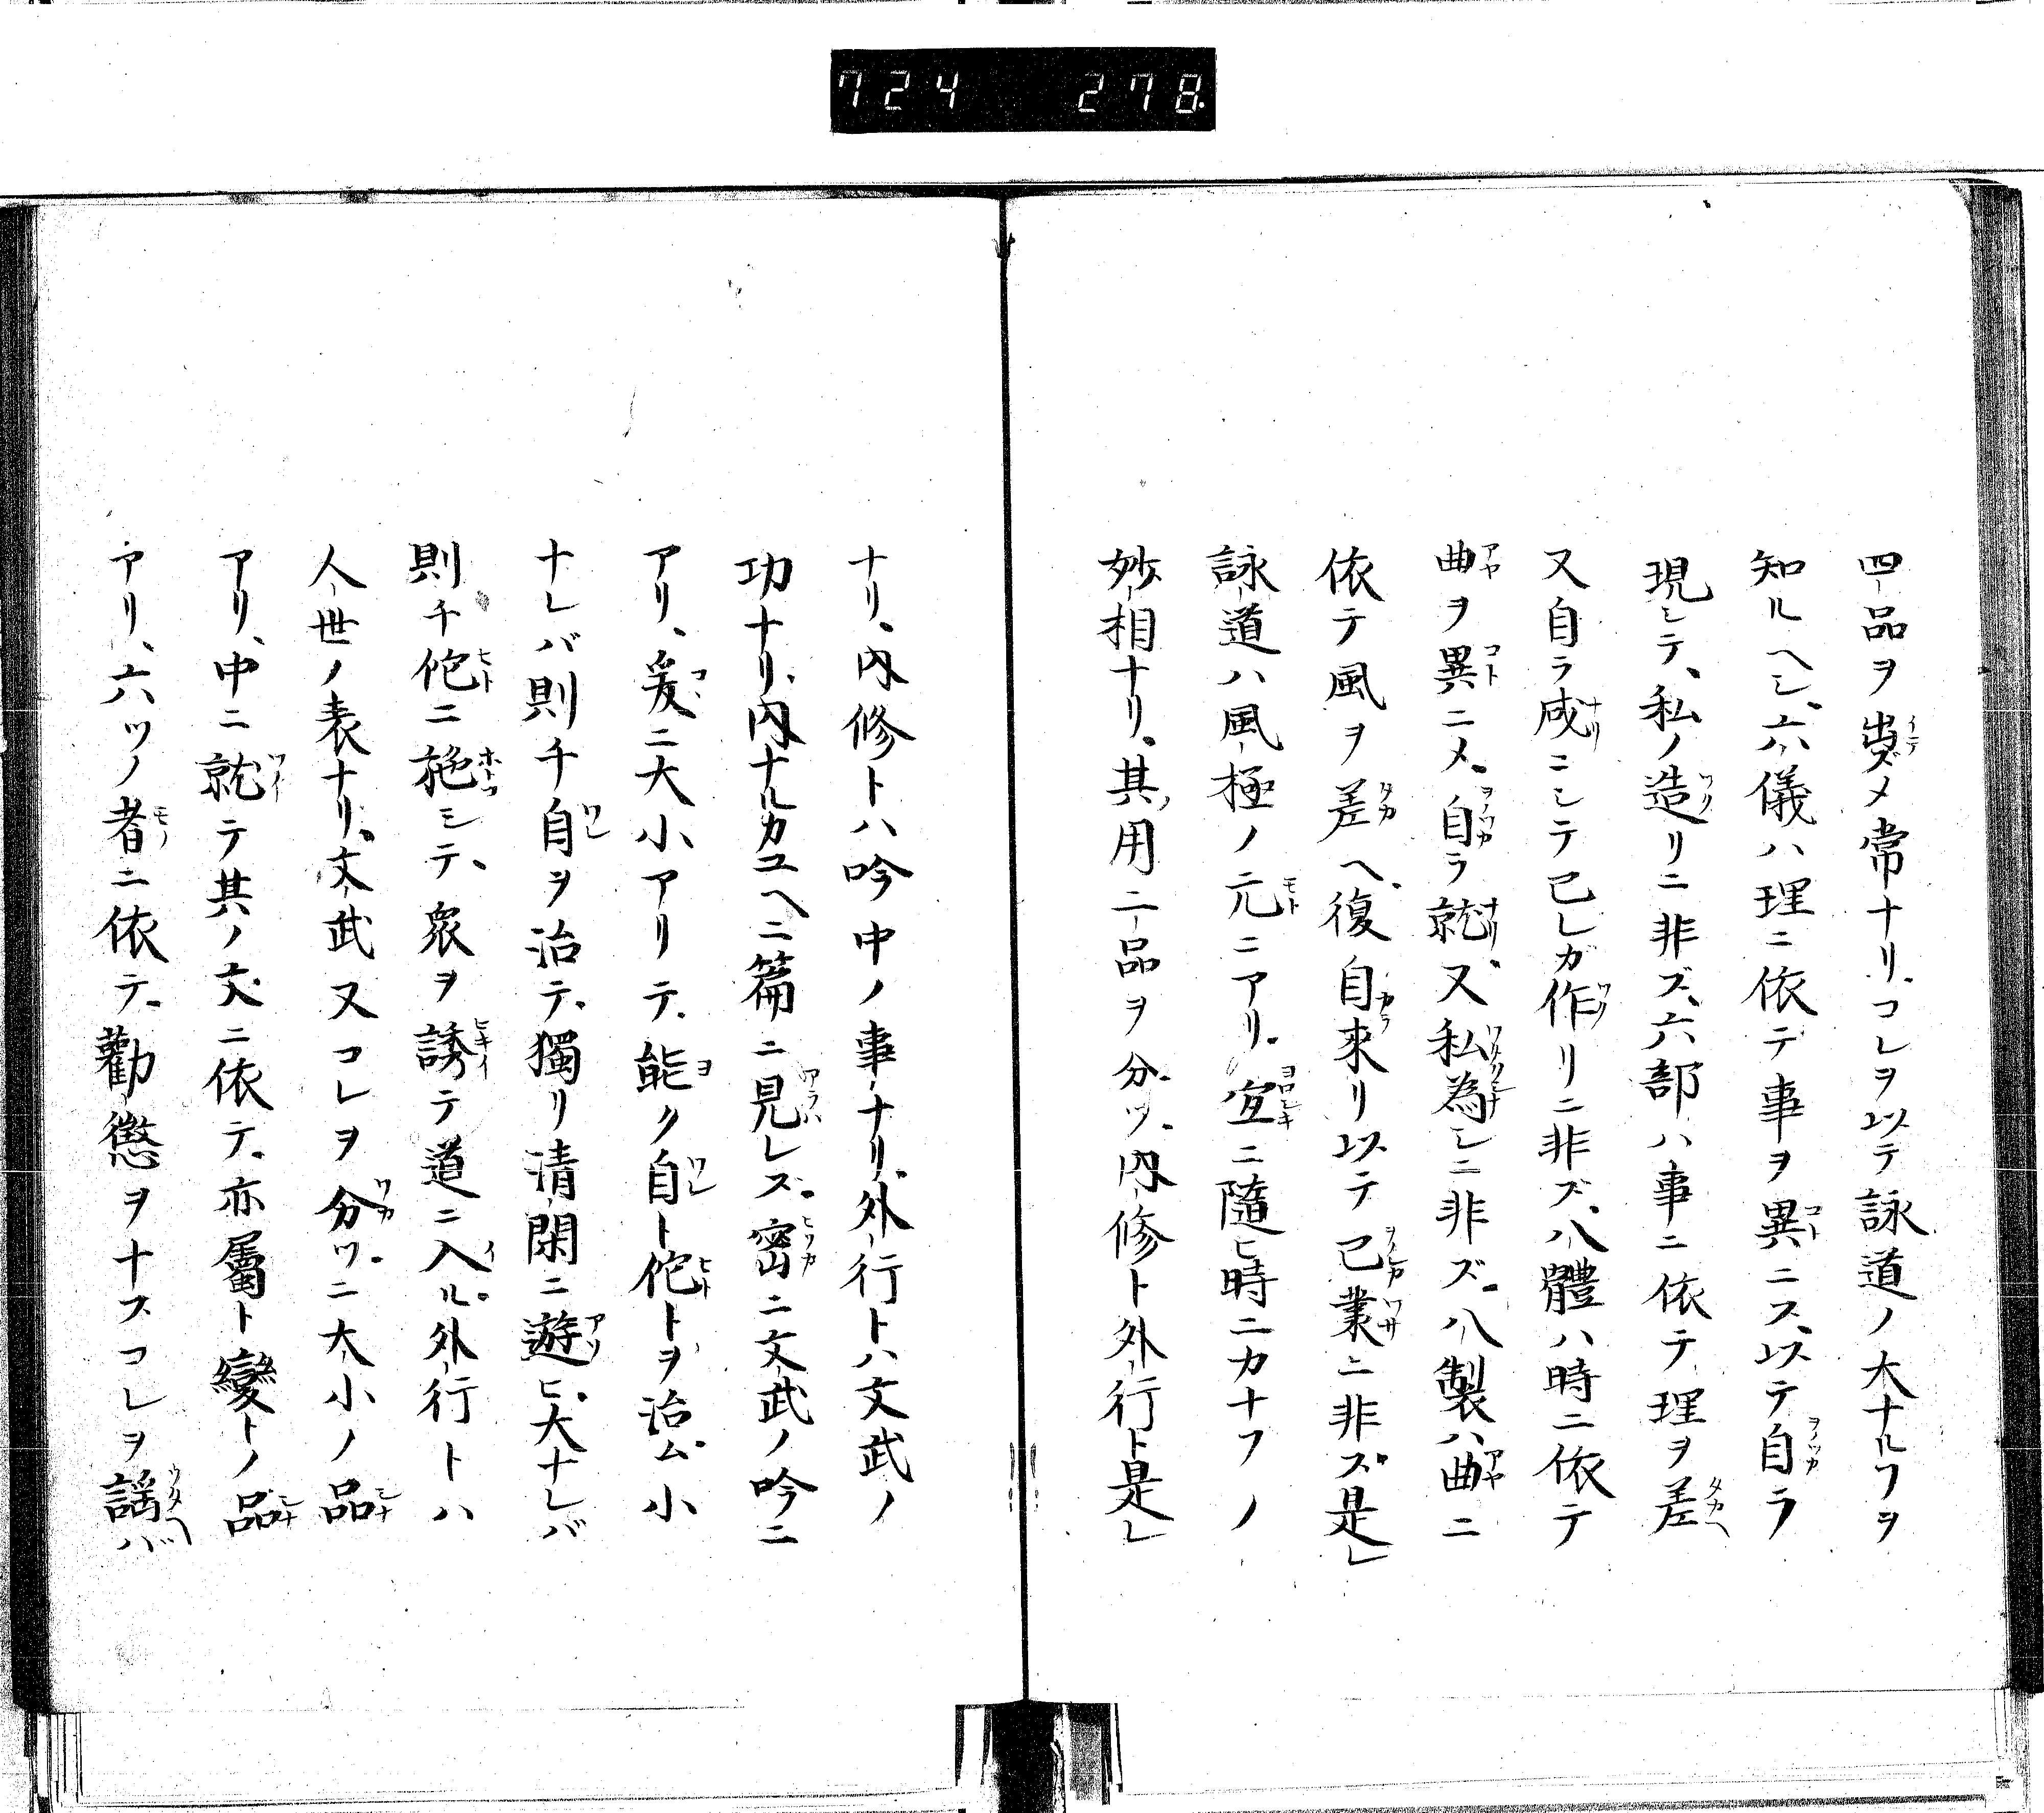 724 278
四品ヲ出ズメ常ナリ、コレヲ以テ詠道ノ大ナルヿヲ
知ルヘシ、六儀ハ理ニ依テ事ヲ異ニス、以テ自ラ
現レテ、私ノ造リニ非ズ、六部ハ事ニ依テ理ヲ差
又自ラ成ニシテ已レガ作リニ非ズ、八體ハ時ニ依テ
曲ヲ異ニメ、自ラ就、又私為レニ非ズ、八製ハ曲ニ
依テ風ヲ差ヘ、復自來リ以テ已業ニ非ズ、是レ
詠道ハ風極ノ元ニアリ、宜ニ隨ヒ時ニカナフノ
妙相ナリ、其用二品ヲ分ツ、内修ト外行ト是レ
ナリ、内修トハ吟中ノ事ナリ、外行トハ文武ノ
功ナリ、内ナルカユヘニ篇ニ見レズ、密ニ文武ノ吟ニ
アリ、爰ニ大小アリテ、能ク自ト佗トヲ治ム、小
ナレバ則チ自ヲ治テ、獨リ清閑ニ遊ヒ、大ナレバ
則チ佗ニ施シテ、衆ヲ誘テ道ニ入ル、外行トハ
人世ノ表ナリ、文武又コレヲ分ツ、ニ大小ノ品
アリ、中ニ就テ其ノ文ニ依テ、亦屬ト變トノ品
アリ、六ツノ者ニ依テ、勸懲ヲナスコレヲ謡バ